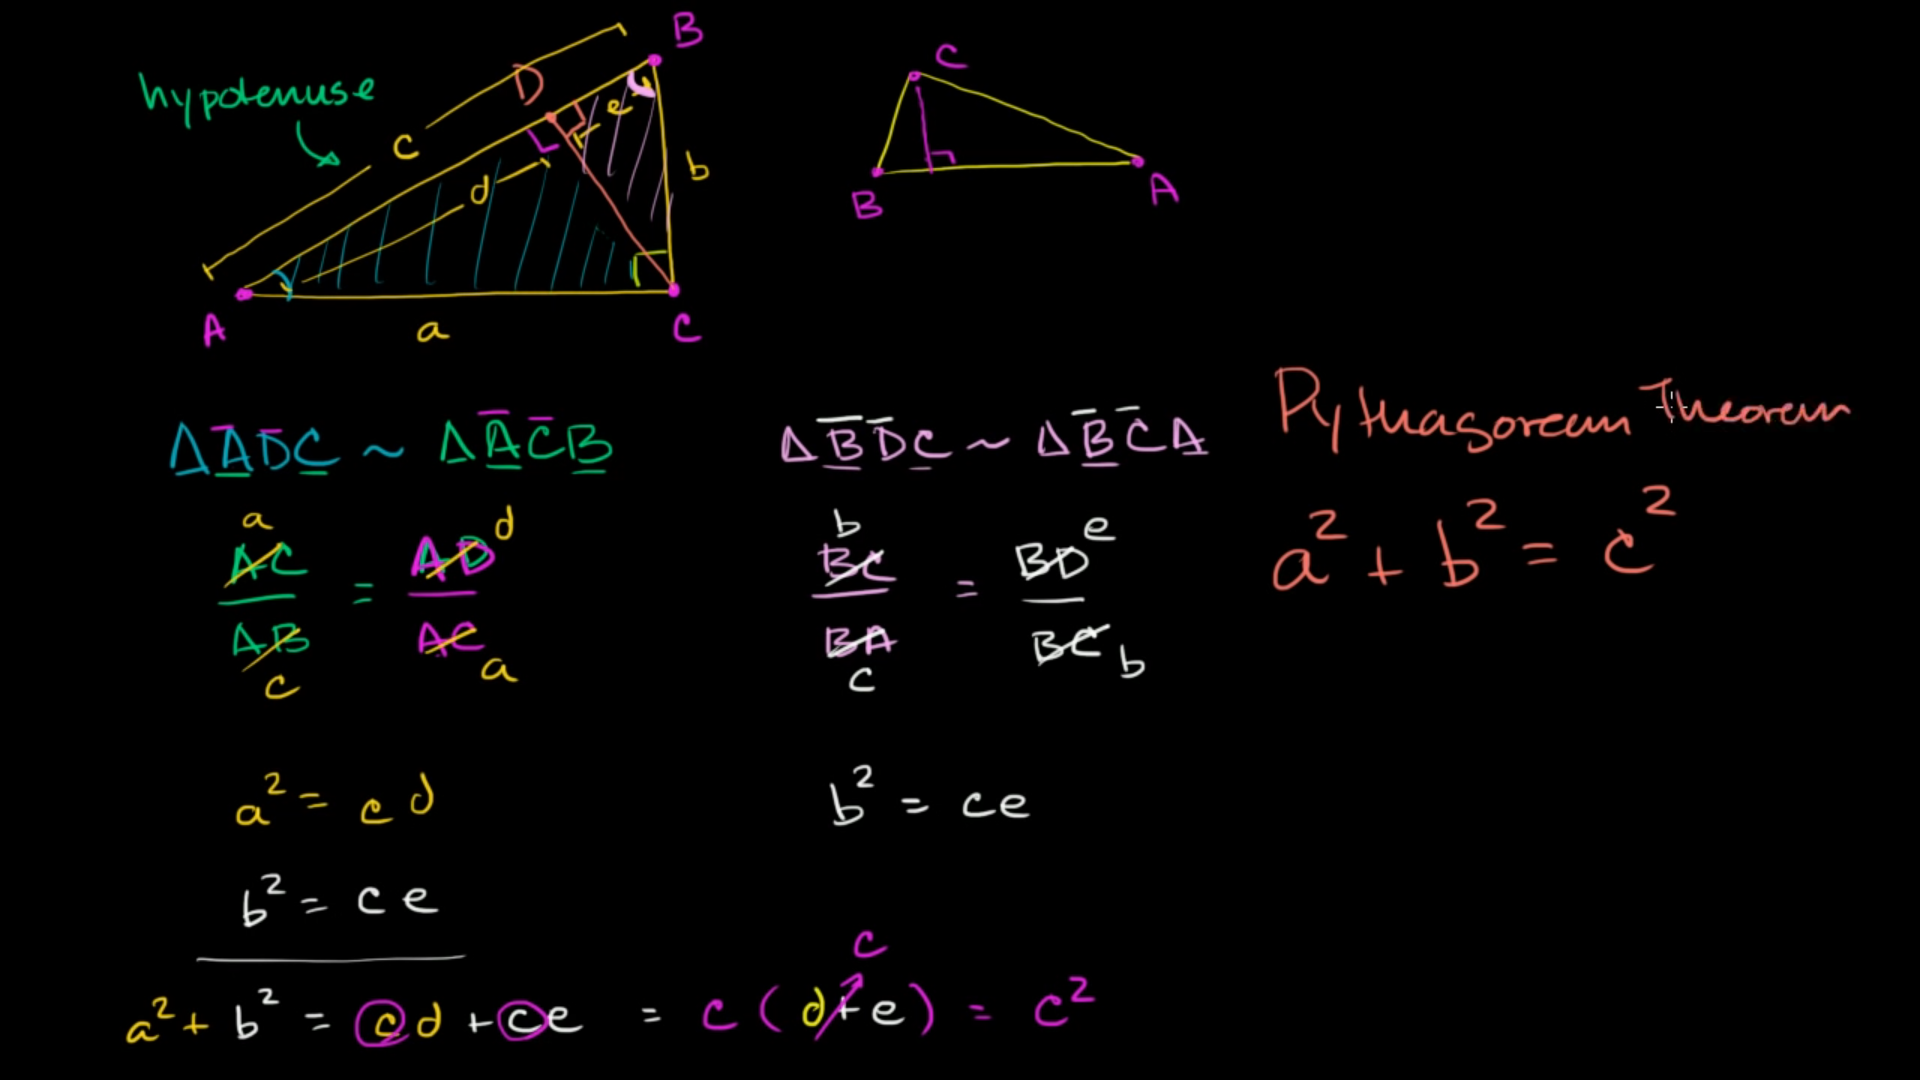 B
hypotenuse
D
e
c
b
d
A
a
C
C
B
A
△ADC ~ △ACB
a d
AC/AB = AD/AC
c a
△BDC ~ △BCA
b e
BC/BA = BD/BC
c b
Pythagorean Theorem
a² + b² = c²
a² = cd
b² = ce
b² = ce
c
a² + b² = cd + ce = c(d+e) = c²